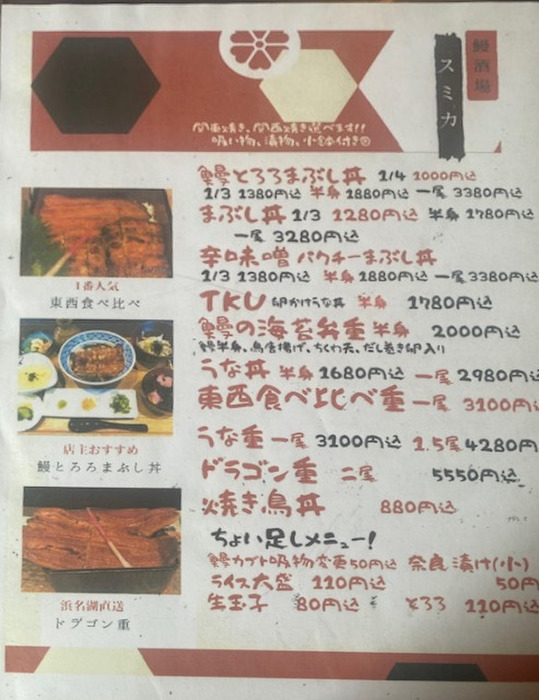 鰻酒場
スミカ
関東焼き、関西焼き選べます!!
吸い物、漬物、小鉢付き◎
鰻とろろまぶし丼 1/4 1000円込
1/3 1380円込 半身 1880円込 一尾 3380円込
まぶし丼 1/3 1280円込 半身 1780円込
一尾 3280円込
辛味噌パクチーまぶし丼
1/3 1380円込 半身 1880円込 一尾 3380円込
TKU 卵かけうな丼 半身 1780円込
鰻の海苔弁重 半身 2000円込
鰻半身、鳥唐揚げ、ちくわ天、だし巻き卵入り
うな丼 半身 1680円込 一尾 2980円込
東西食べ比べ重 一尾 3100円込
うな重 一尾 3100円込 1.5尾 4280円
ドラゴン重 二尾 5550円込
焼き鳥丼 880円込
ちょい足しメニュー!
鰻カブト吸物変更50円込 奈良漬け(小)
ライス大盛 110円込 50円
生玉子 80円込 とろろ 110円込
1番人気
東西食べ比べ
店主おすすめ
鰻とろろまぶし丼
浜名湖直送
ドラゴン重